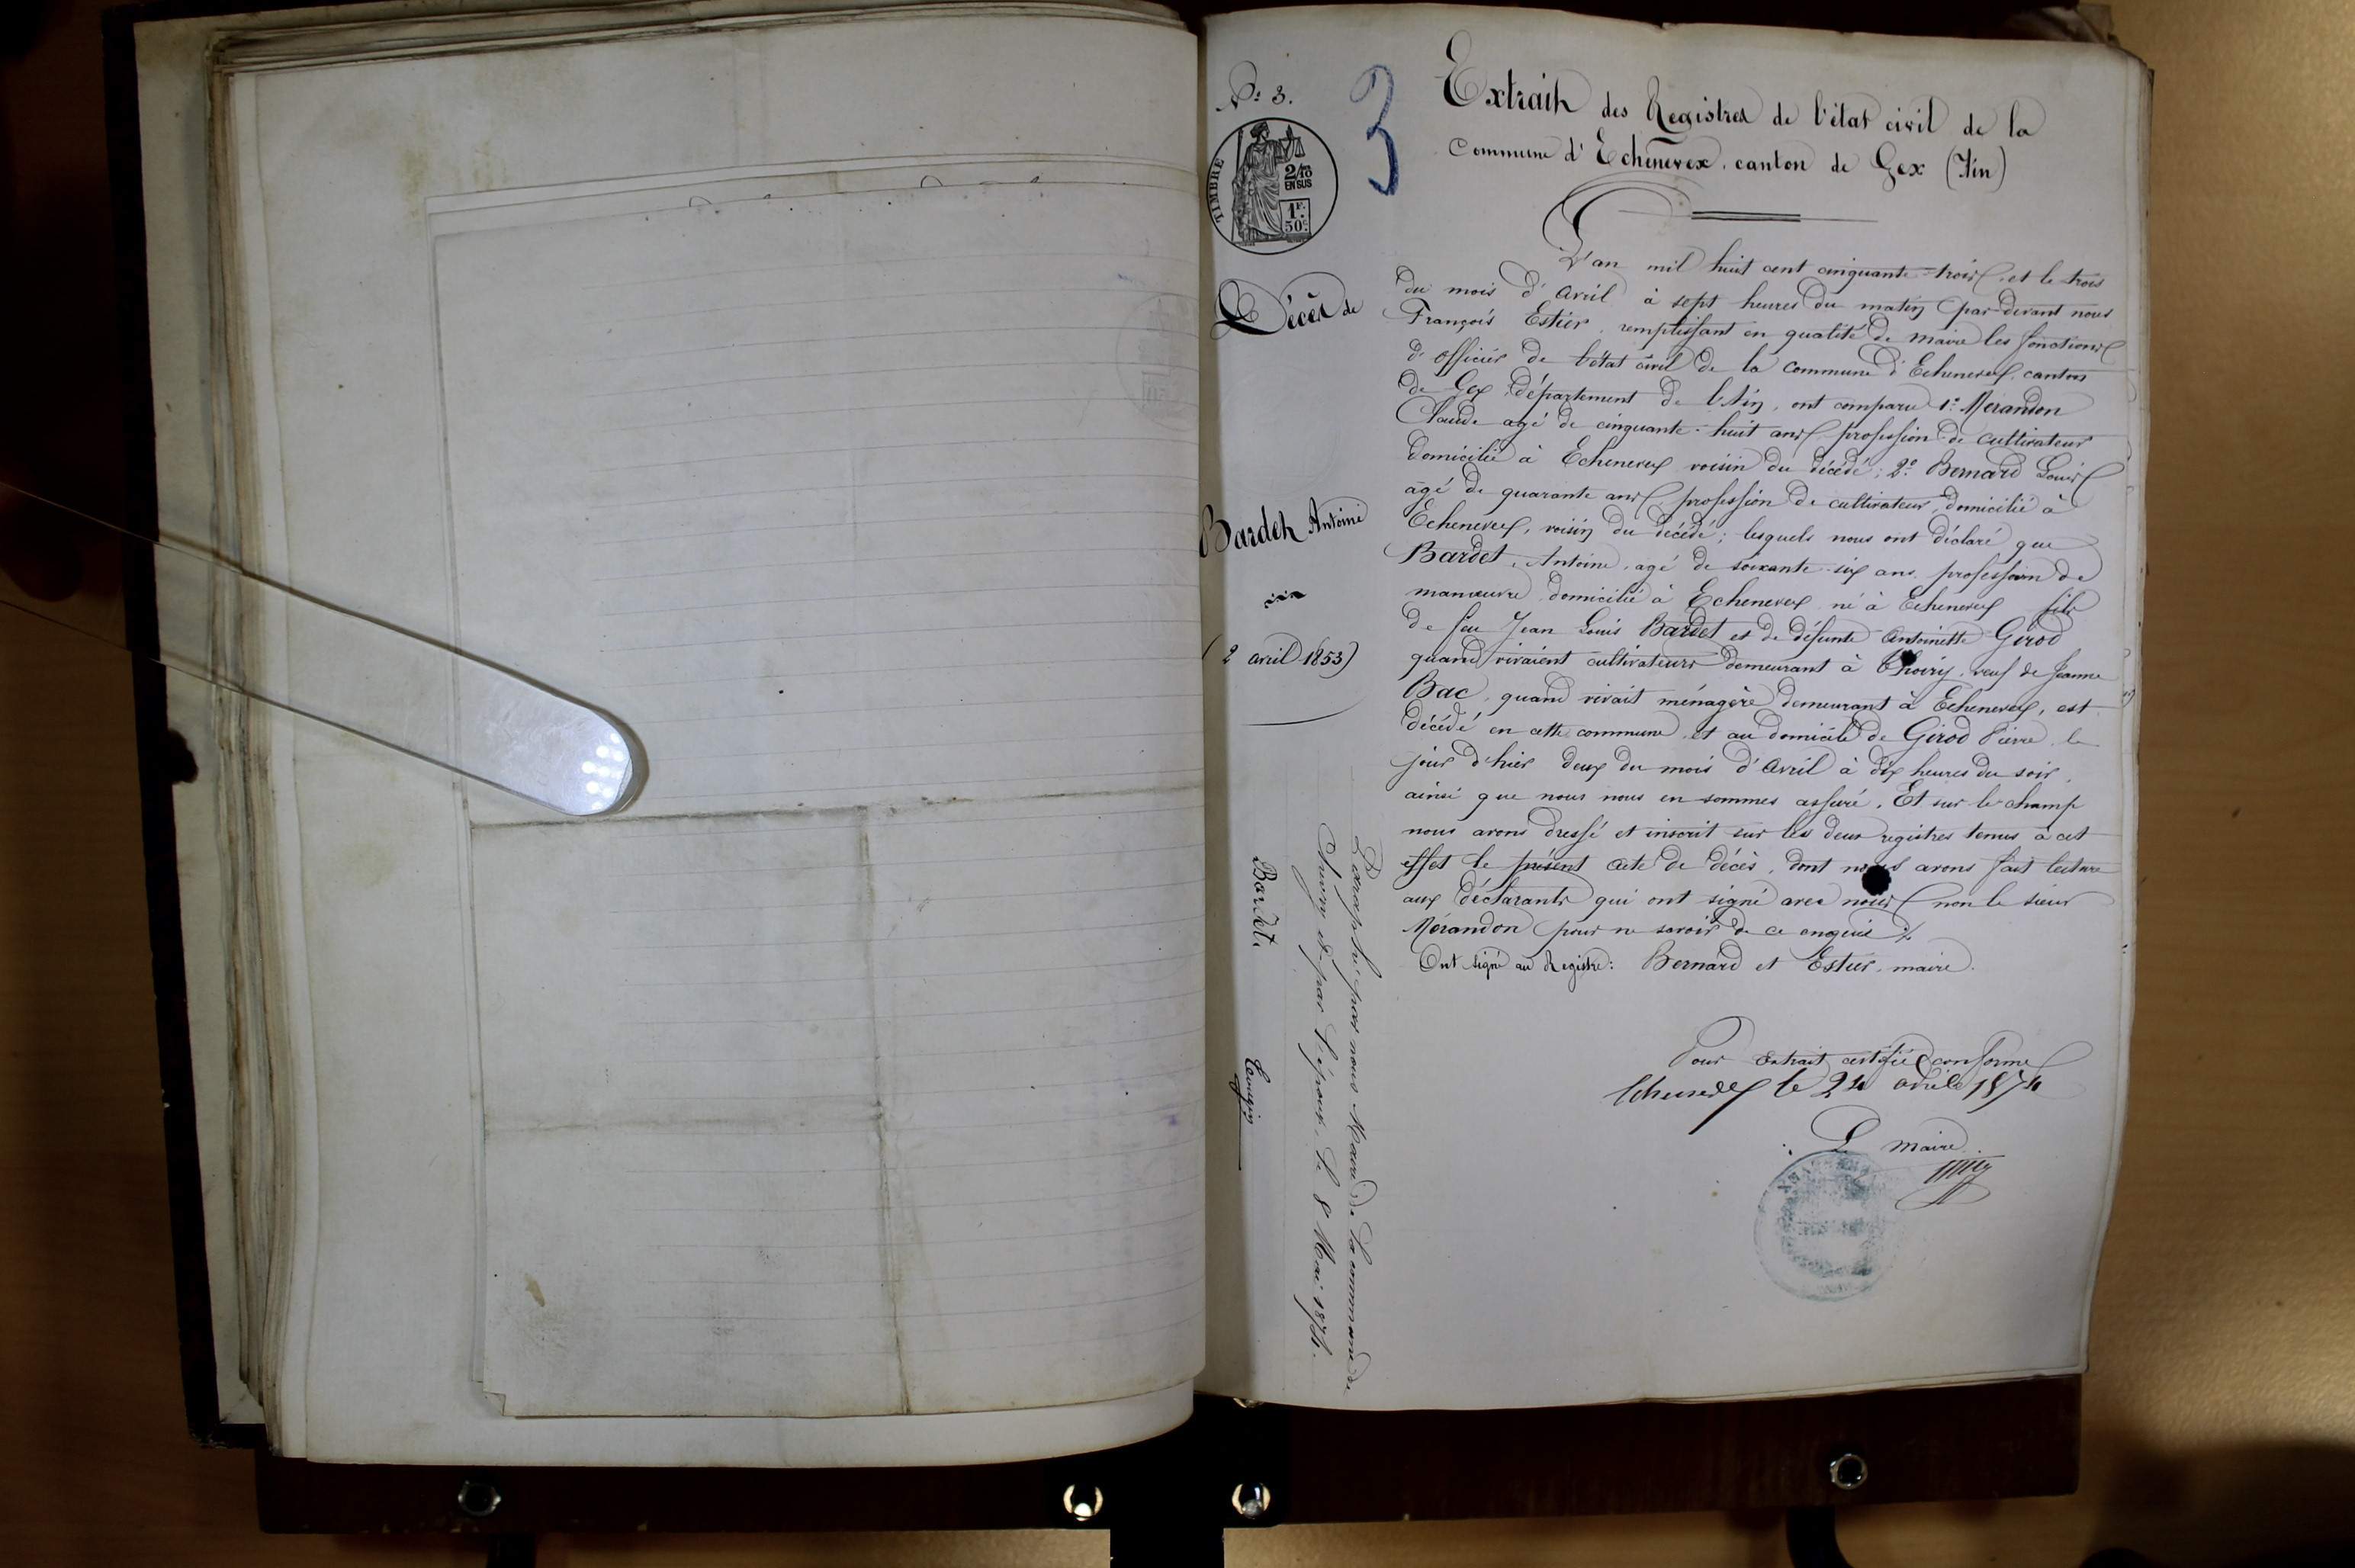 N.º 3.
3
TIMBRE
2/10
EN SUS
1F.
50c.
Décès de
Bardet Antoine
(2 avril 1853)
Extrait des Registres de l'état civil de la
Commune d'Echenevex, canton de Gex (Ain)
L'an mil huit cent cinquante-trois, et le trois
du mois d'Avril à sept heures du matin par-devant nous
François Estier, remplissant en qualité de maire les fonctions
d'officier de l'état civil de la commune d'Echenevex, canton
de Gex, département de l'Ain, ont comparu 1º Mérandon
Claude agé de cinquante-huit ans, profession de cultivateur
domicilié à Echenevex voisin du décédé; 2º Bernard Louis
âgé de quarante ans, profession de cultivateur, domicilié à
Echenevex, voisin du décédé; lesquels nous ont déclaré que
Bardet, Antoine, agé de soixante-six ans, profession de
manœuvre domicilié à Echenevex né à Echenevex fils
de feu Jean Louis Bardet et de défunte Antoinette Girod
quand vivaient cultivateurs demeurant à Thoiry, veuf de Jeanne
Bac, quand vivait ménagère demeurant à Echenevex, est
décédé en cette commune, et au domicile de Girod Pierre, le
jour d'hier deux du mois d'Avril à dix heures du soir,
ainsi que nous nous en sommes assuré. Et sur-le-champ
nous avons dressé et inscrit sur les deux registres tenus à cet
effet le présent acte de décès, dont nous avons fait lecture
aux déclarants qui ont signé avec nous, non le sieur
Mérandon pour ne savoir de ce enquis %.
Ont signé au Registre: Bernard et Estier, maire.
Pour extrait certifié conforme
Echenevex le 24 avril 1874
Le maire
Paraphé par nous Maire de la commune de
Thoiry et par l'époux. Le 8 Mai 1874.
Bardet